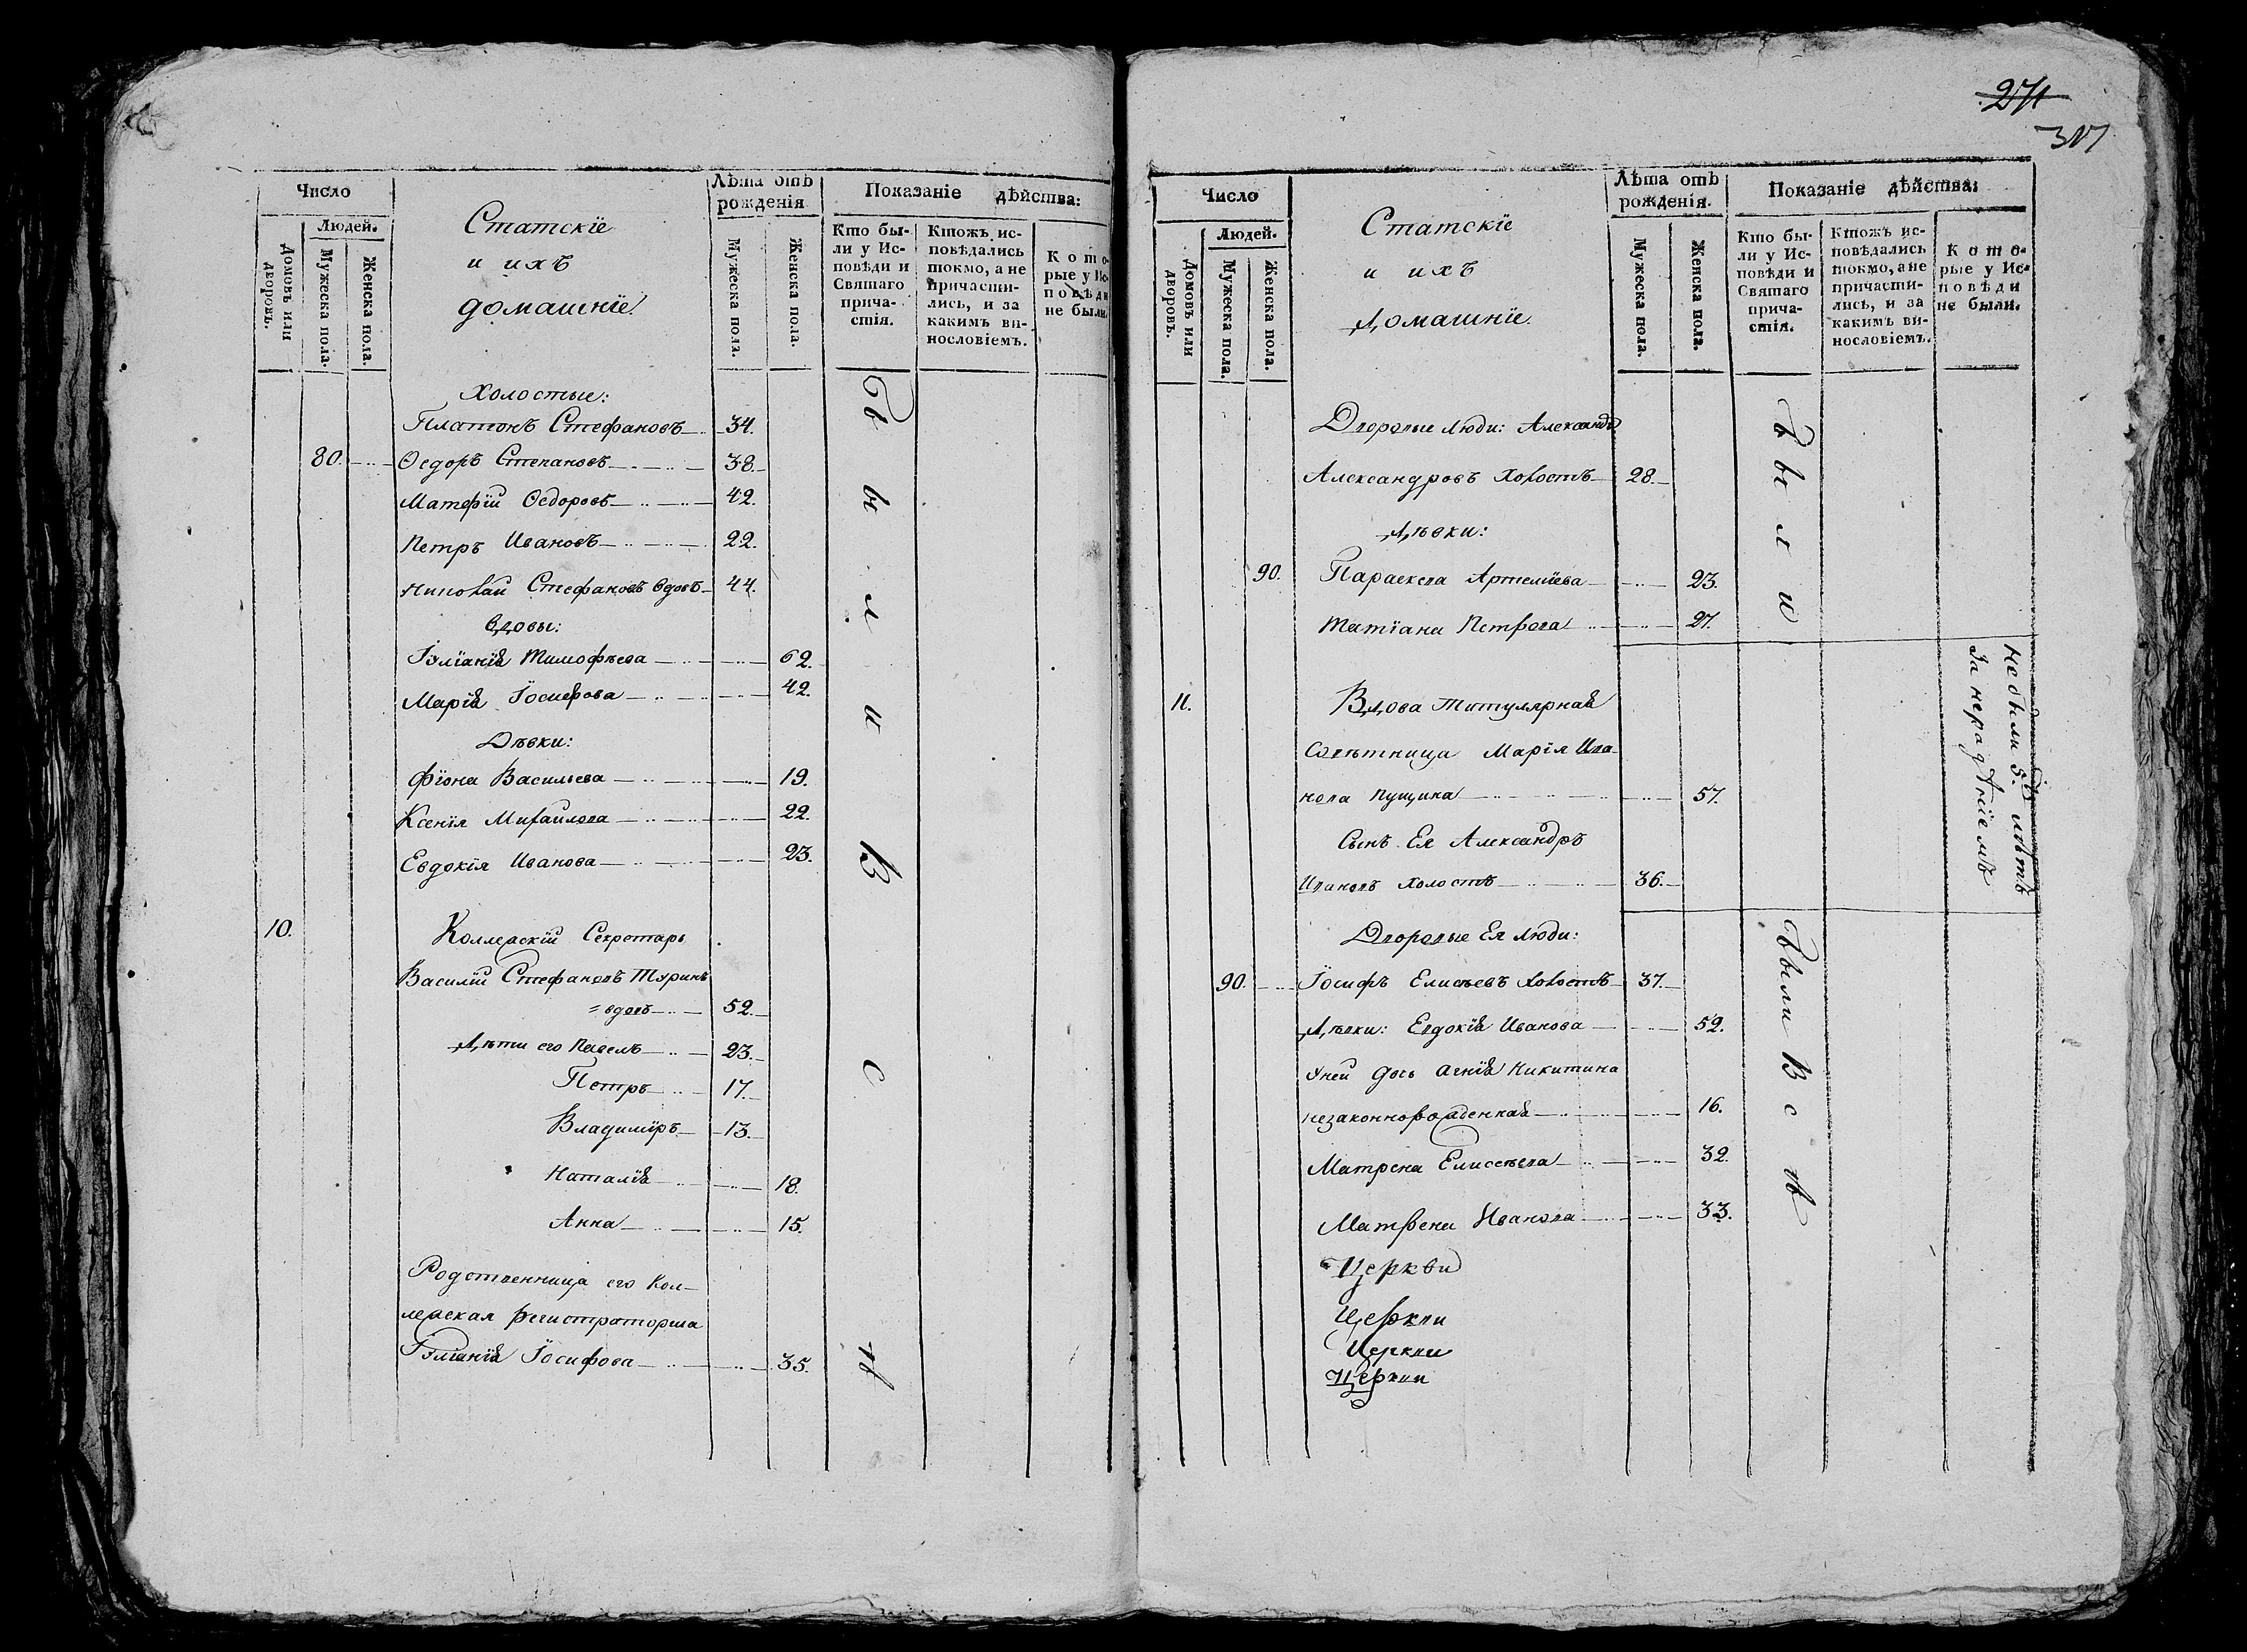 Число
Людей.
Домовъ или дворовъ.
Мужеска пола.
Женска пола.
Статскіе
и ихъ
домашніе
Лѣта отъ рожденія
Мужеска пола.
Женска пола.
Показаніе дѣйства:
Кто были у Исповѣди и Святаго причастія.
Ктожъ исповѣдались токмо, а не причастились, и за какимъ винословіемъ.
Которые у Исповѣди не были.
Холостые:
Платонъ Стефановъ 34.
80. Ѳедоръ Степановъ 38.
Матфій Ѳедоровъ 42.
Петръ Ивановъ 22.
Николай Стефановъ вдовъ 44.
Вдовы:
Іуліанія Тимофѣева 62.
Марія Іосифова 42.
Дѣвки:
Фіона Васильева 19.
Ксенія Михайлова 22.
Евдокія Иванова 23.
10. Коллежскій Секретарь
Василій Стефановъ Туринъ
=вдовъ 52.
Дѣти его Павелъ 23.
Петръ 17.
Владиміръ 13.
Наталія 18.
Анна 15.
Родственница его Кол-
лежская регистраторша
Іуліанія Іосифова 35.
Были Всѣ
271
317
Число
Людей.
Домовъ или дворовъ.
Мужеска пола.
Женска пола.
Статскіе
и ихъ
Домашніе
Лѣта отъ рожденія.
Мужеска пола.
Женска пола.
Показаніе дѣйства:
Кто были у Исповѣди и Святаго причастія.
Ктожъ исповѣдались токмо, а не причастились, и за какимъ винословіемъ.
Которые у Исповѣди не были.
Дворовые люди: Александръ
Александровъ Холостъ 28.
Дѣвки:
90. Параскева Артеміева 23.
Татіана Петрова 27.
Были
11. Вдова Титулярная
Совѣтница Марія Ива-
нова Пущина 57.
Сынъ Ея Александръ
Ивановъ Холостъ 36.
не были 5. лѣтъ
За нерадѣніемъ
Дворовые Ея люди:
90. Іосифъ Елисѣевъ Холостъ 37.
Дѣвки: Евдокія Иванова 52.
Уней дочь Агнія Никитина
незаконнорожденная 16.
Матрена Елисѣева 32.
Матрена Иванова 33.
Были Всѣ
Церкви
Церкви
Церкви
Церкви